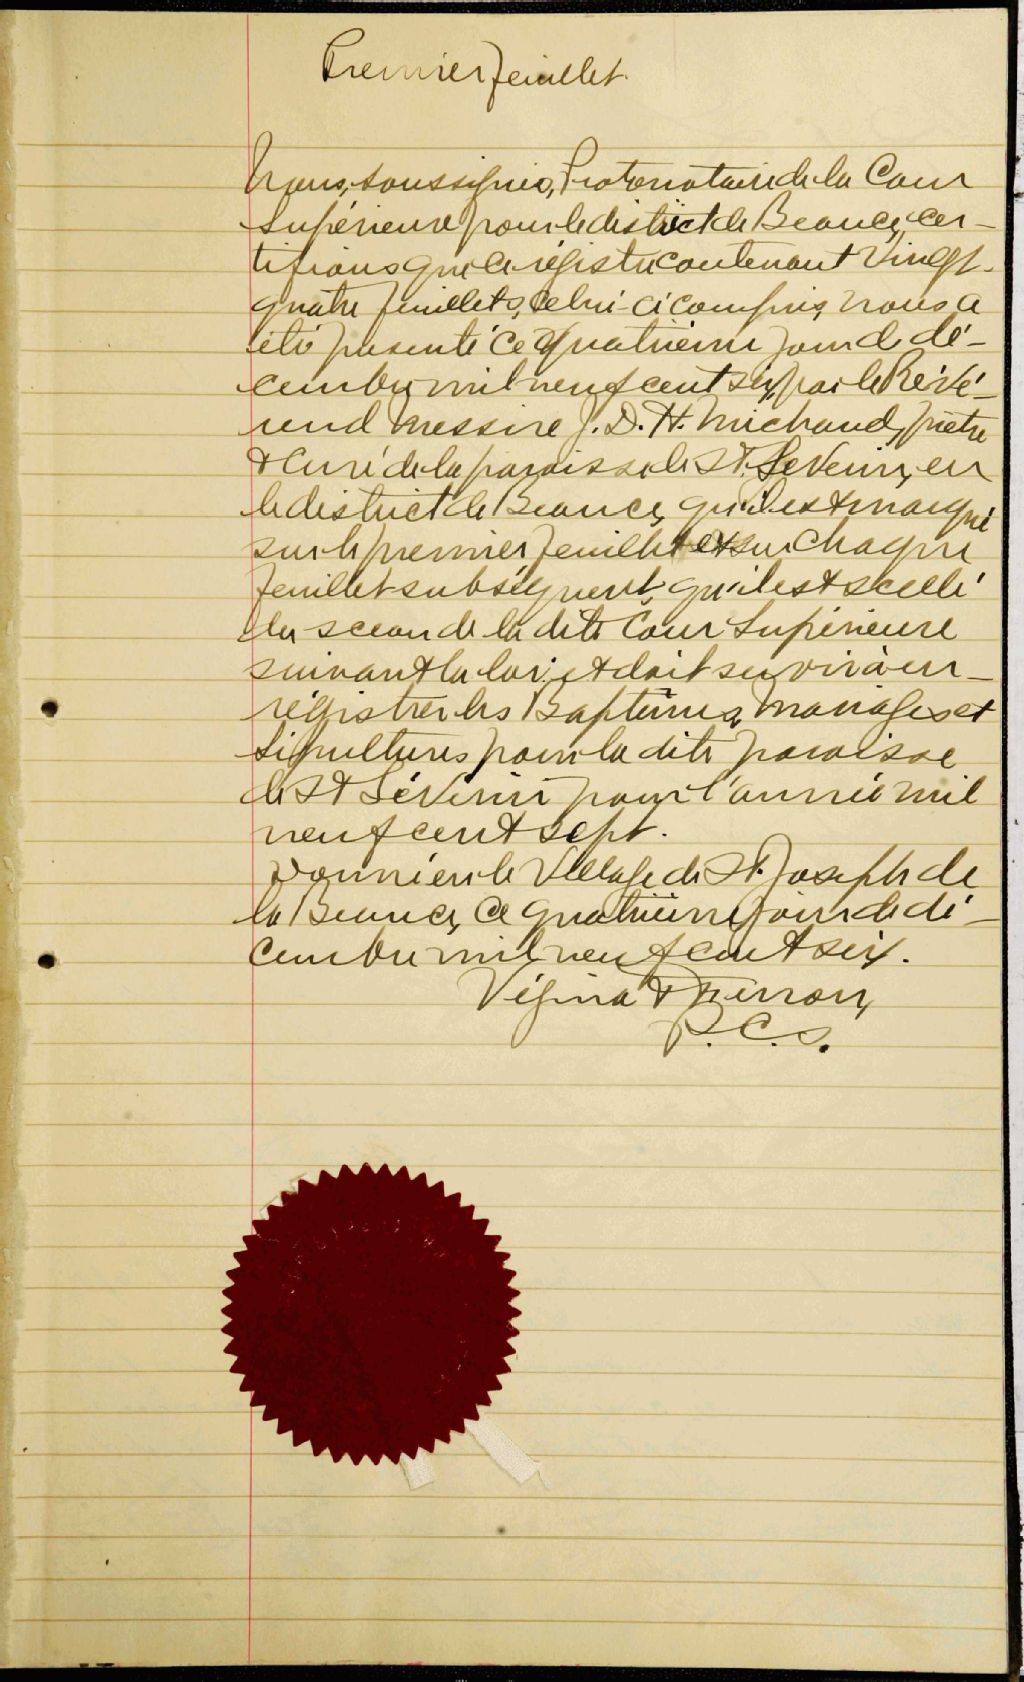 Premier feuillet.
Nous, soussignés, Protonotaire de la Cour
Supérieure pour le district de Beauce, cer-
tifions que ce régistre contenant Vingt-
quatre feuillets, celui-ci compris, nous a
été présenté ce quatrième jour de dé-
cembre mil neuf cent six, par le Révé-
rend Messire J. D. H. Michaud, prêtre
& Curé de la paroisse de St. Séverin, en
le district de Beauce, qu'il est marqué
sur le premier feuillet et sur chaque
feuillet subséquent, qu'il est scellé
du sceau de la dite Cour Supérieure
suivant la loi; et doit servir à en-
régistrer les Baptêmes, Mariages et
Sépultures pour la dite paroisse
de St Séverin pour l'année mil
neuf cent sept.
Donné en le Village de St. Joseph de
la Beauce, ce quatrième jour de dé-
cembre mil neuf cent six.
Vézina & Th[...]
P.C.S.